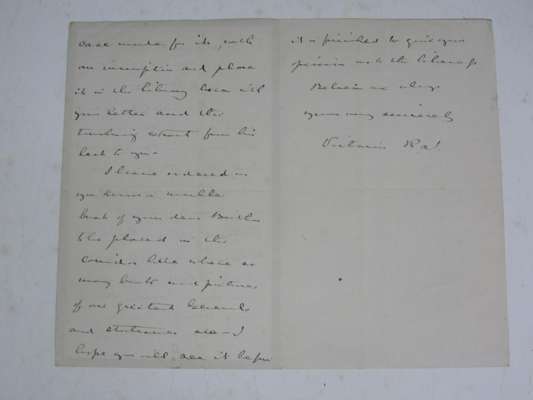 case made for it, with
an inscription and place
it in the library here with
your letter and the
touching extract from his
last to you.
I have ordered as
you know a marble
bust of your dear Brother
to be placed in the
corridor here where so
many busts and pictures
of our greatest Generals
and Statesmen are & I
hope you will see it before
it is finished to give your
opinion as to the likeness
Believe me always
yours very sincerely
Victoria R.I.